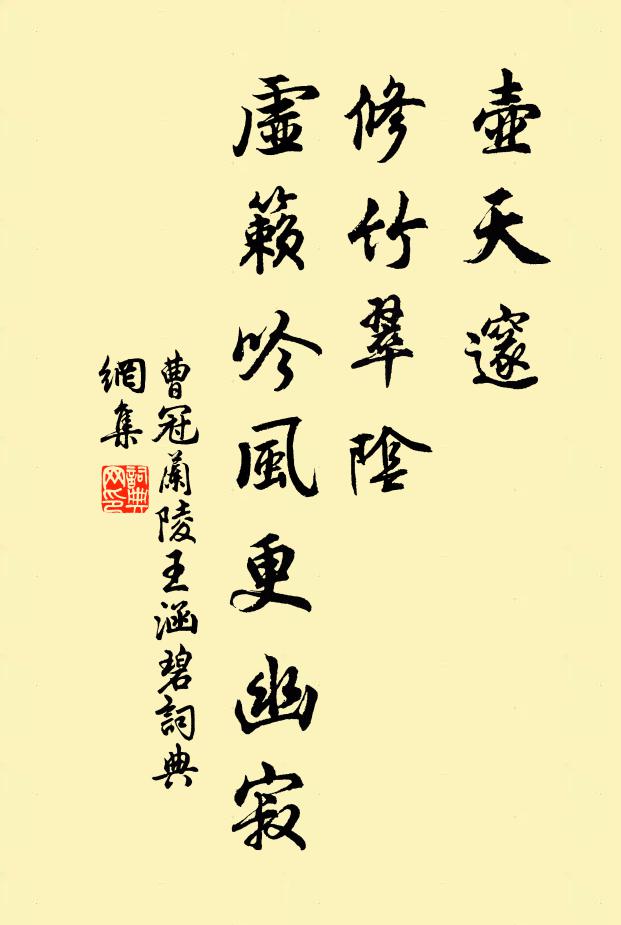 壺天邃
修竹翠陰
虛籟吟風更幽寂
曹冠蘭陵王涵碧詞典
網集
詞典
网印